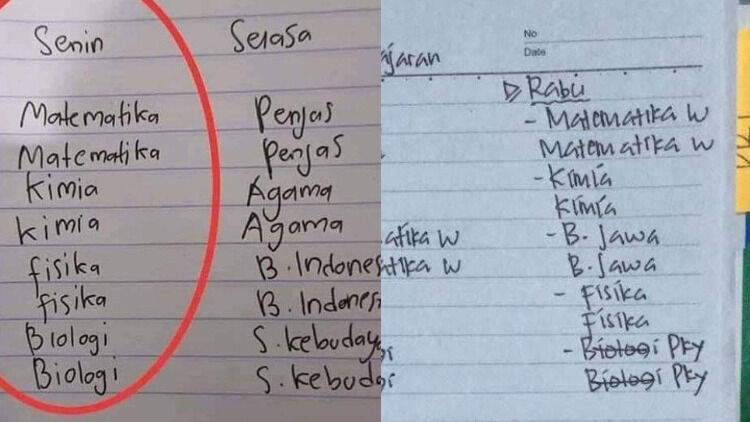 Senin
Matematika
Matematika
Kimia
Kimia
fisika
fisika
Biologi
Biologi
Selasa
Penjas
Penjas
Agama
Agama
B. Indones
B. Indones
S. kebuday
S. kebud
ajaran
atika W
tika W
gi
gi
No
Date
Rabu
- Matematika W
Matematika W
- Kimia
Kimia
- B. Jawa
B. Jawa
- Fisika
Fisika
- Biologi Pky
Biologi Pky